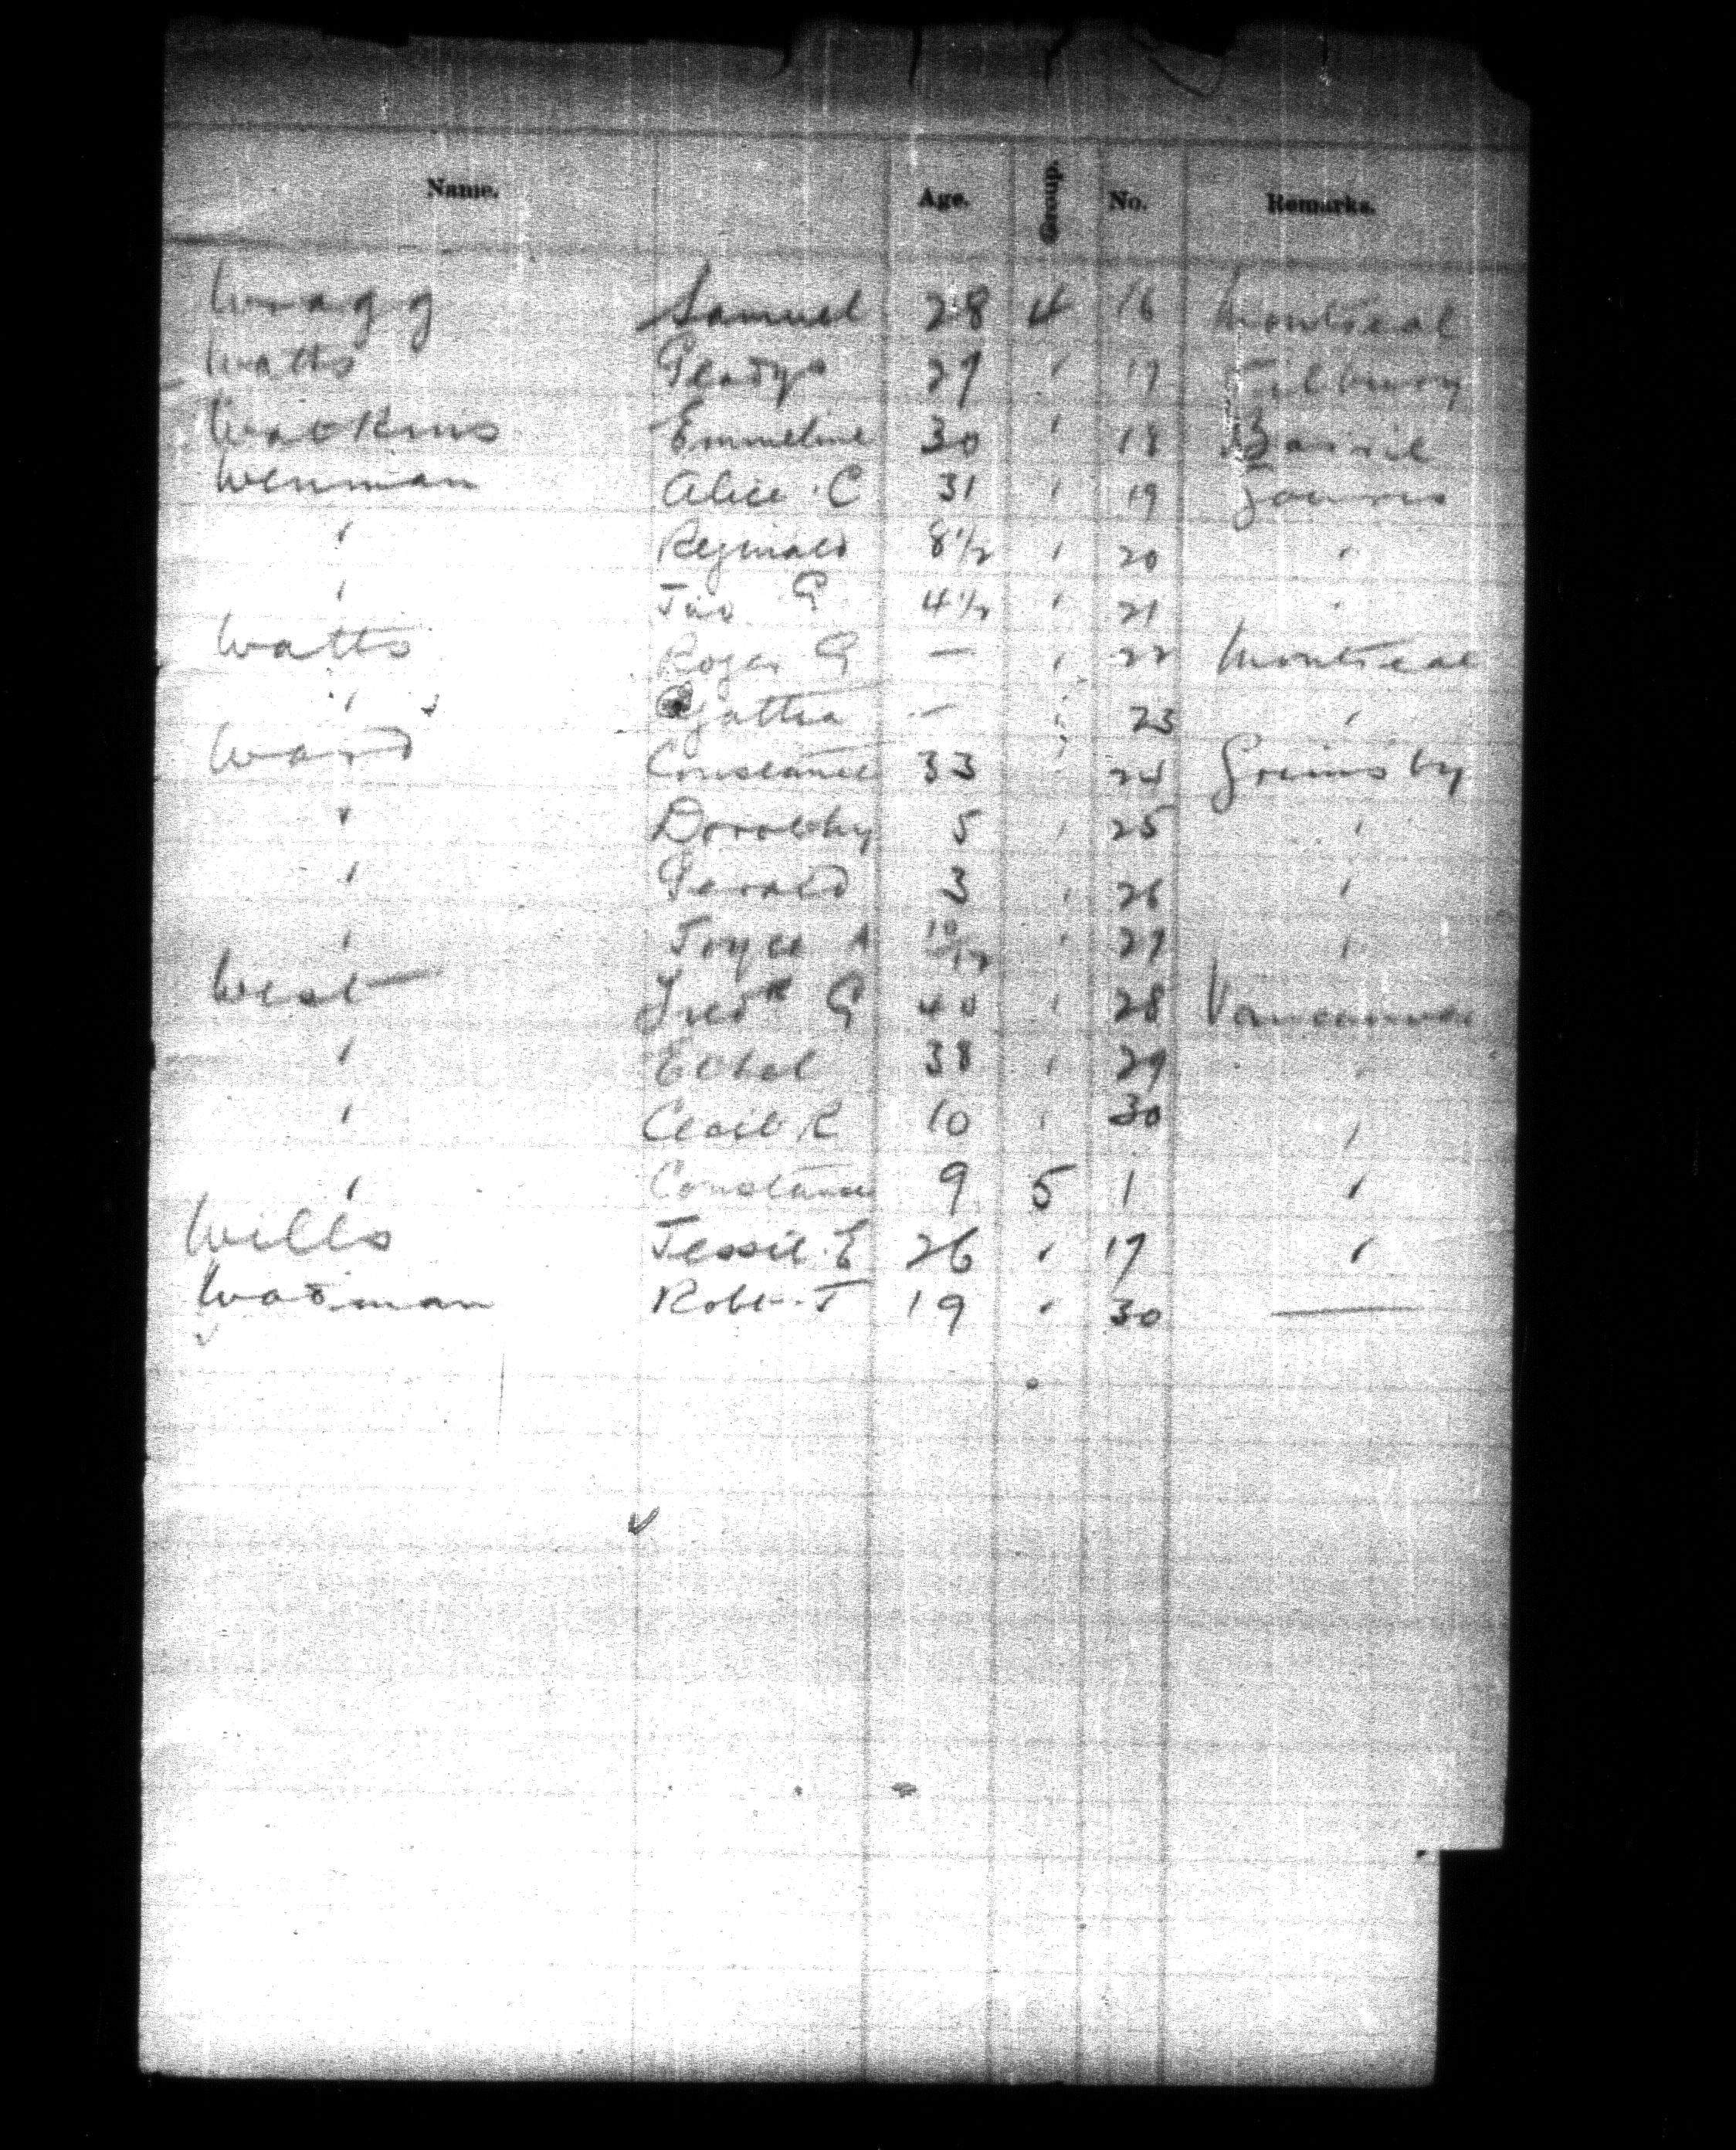 Name. Age. Group. No. Remarks.
Wragg Samuel 28 4 16 Montreal
Watts Gladys 27 " 17 Tilbury
Watkins Emmeline 30 " 18 Barrie
Wenman Alice C 31 " 19
" Reginald 8½ " 20 "
" G 4½ " 21 "
Watts Roger G — " 22 Montreal
" — " 23 "
Ward Constance 33 " 24 Grimsby
" Dorothy 5 " 25 "
" Gerald 3 " 26 "
" Joyce A 10/12 " 27 "
West Fredk G 40 " 28 Vancouver
" Ethel 38 " 29 "
" Cecil R 10 " 30 "
" Constance 9 5 1 "
Wills Jessie E 26 " 17 "
Wadman Robt. J 19 " 30 —